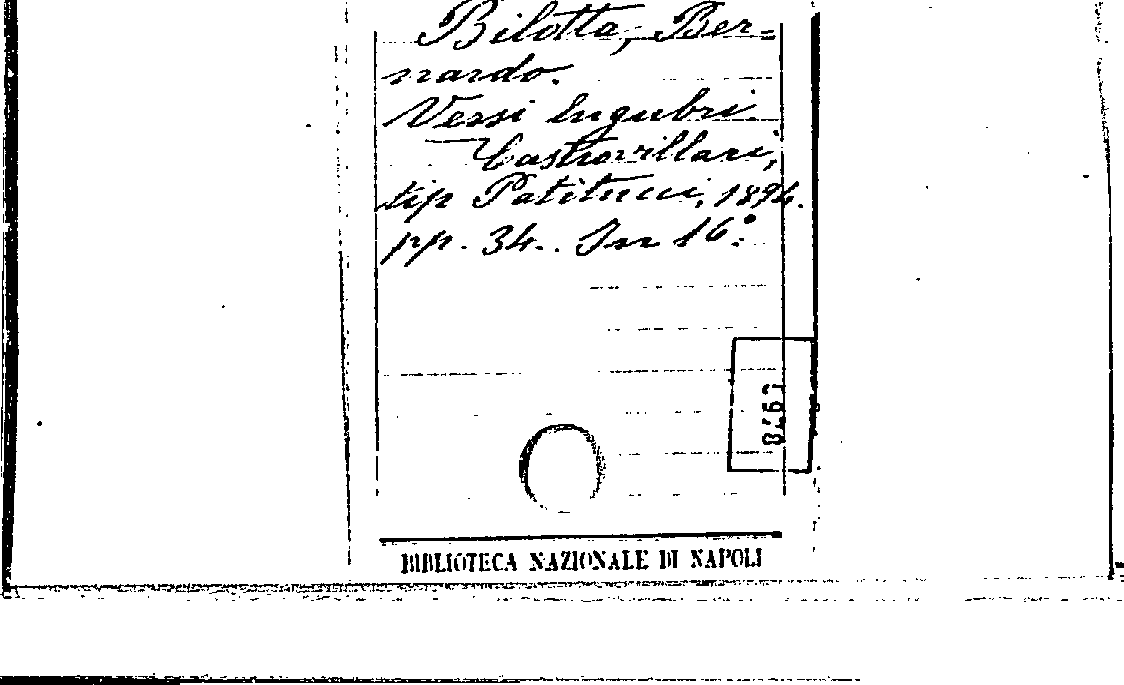 Bilotta, Ber-
nardo.
Versi lugubri.
Castrovillari,
tip Patitucci, 1894.
pp. 34. In 16°.
1978
BIBLIOTECA NAZIONALE DI NAPOLI